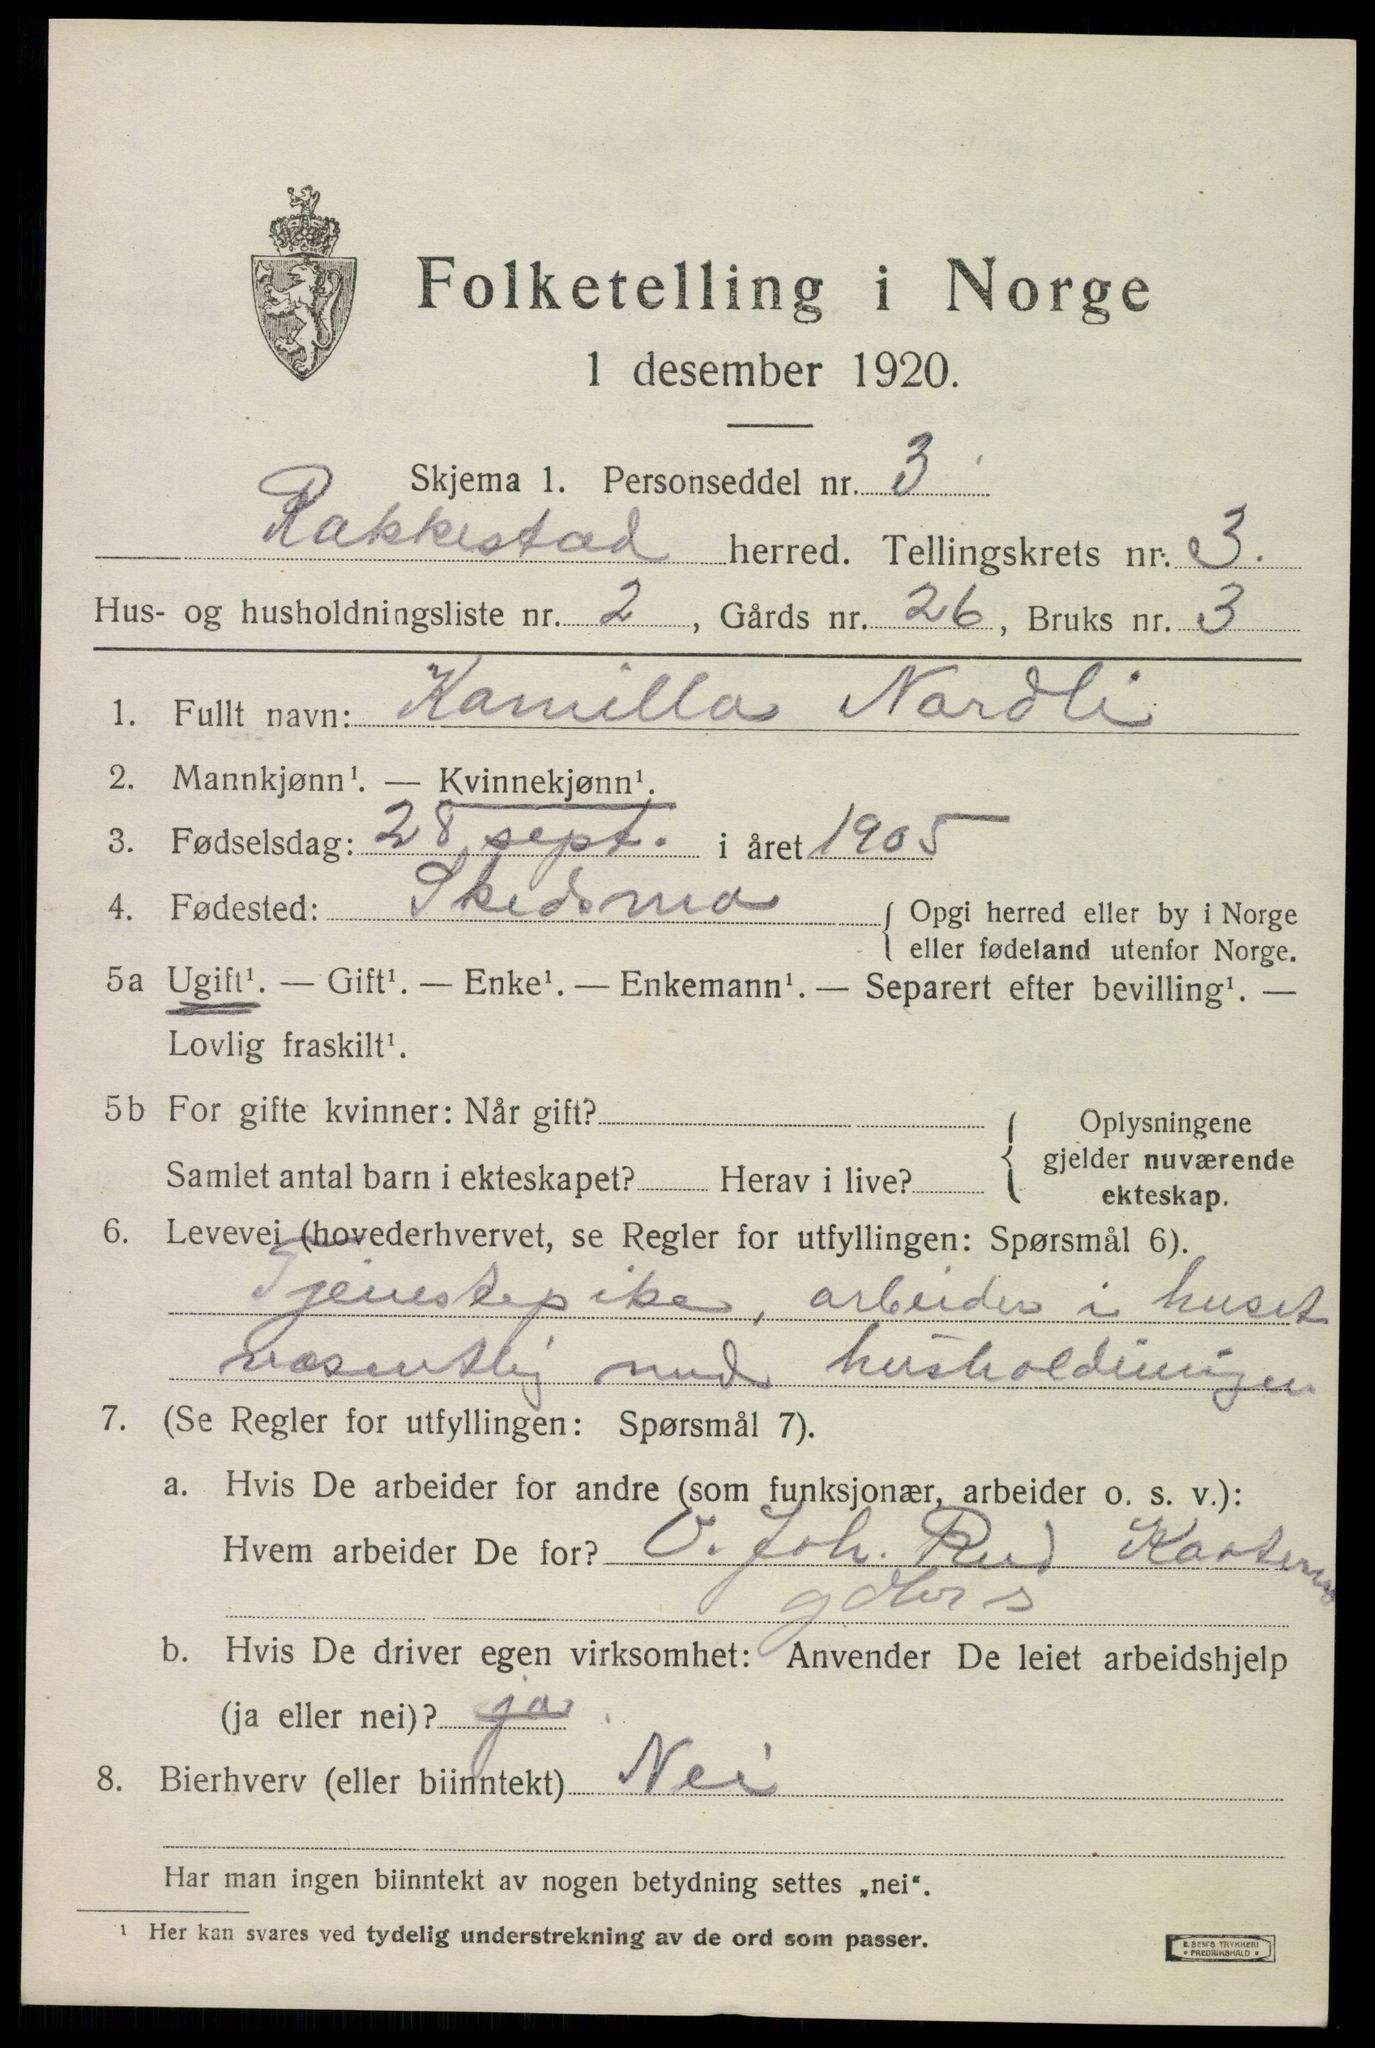 Folketelling i Norge
1 desember 1920.
Skjema 1. Personseddel nr. 3
Rakkestad herred. Tellingskrets nr. 3.
Hus- og husholdningsliste nr. 2, Gårds nr. 26, Bruks nr. 3
1. Fullt navn: Kamilla Nordli
2. Mannkjønn¹. — Kvinnekjønn¹.
3. Fødselsdag: 28 sept. i året 1905
4. Fødested: Skedsmo { Opgi herred eller by i Norge
eller fødeland utenfor Norge.
5a Ugift¹. — Gift¹. — Enke¹. — Enkemann¹. — Separert efter bevilling¹. —
Lovlig fraskilt¹.
5b For gifte kvinner: Når gift?
Samlet antal barn i ekteskapet? Herav i live?
Oplysningene
gjelder nuværende
ekteskap.
6. Levevei (hovederhvervet, se Regler for utfyllingen: Spørsmål 6).
Tjenestepike, arbeider i huset
væsentlig med husholdningen
7. (Se Regler for utfyllingen: Spørsmål 7).
a. Hvis De arbeider for andre (som funksjonær, arbeider o. s. v.):
Hvem arbeider De for? O. Joh. Rud
b. Hvis De driver egen virksomhet: Anvender De leiet arbeidshjelp
(ja eller nei)? ja
8. Bierhverv (eller biinntekt) Nei
Har man ingen biinntekt av nogen betydning settes „nei“.
¹ Her kan svares ved tydelig understrekning av de ord som passer.
E. SEM'S TRYKKERI
• FREDRIKSHALD •